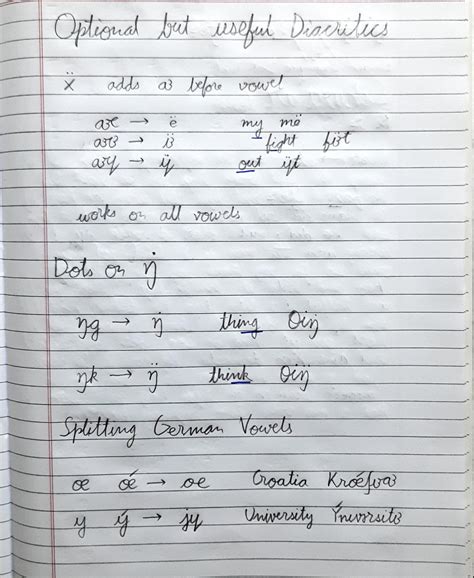 Optional but useful Diacritics
ẍ adds aɜ before vowel
aɜe → ë my më
aɜɜ → ɜ̈ fight fɜ̈t
aɜy → ÿ out ÿt
works on all vowels
Dots on ŋ̇
ŋg → ŋ̇ thing Θiŋ̇
ŋk → ŋ̈ think Θiŋ̈
Splitting German Vowels
œ œ́ → oe Croatia
y ý → jy University